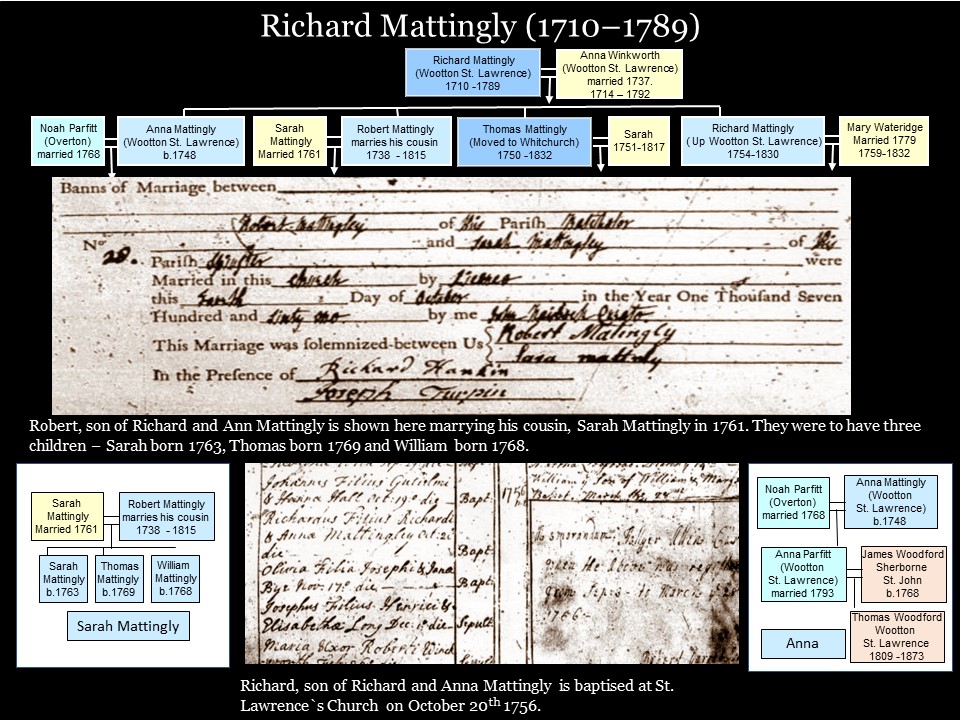 Richard Mattingly (1710–1789)
Richard Mattingly
(Wootton St. Lawrence)
1710 -1789
Anna Winkworth
(Wootton St. Lawrence)
married 1737.
1714 – 1792
Noah Parfitt
(Overton)
married 1768
Anna Mattingly
(Wootton St. Lawrence)
b.1748
Sarah
Mattingly
Married 1761
Robert Mattingly
marries his cousin
1738 - 1815
Thomas Mattingly
(Moved to Whitchurch)
1750 -1832
Sarah
1751-1817
Richard Mattingly
( Up Wootton St. Lawrence)
1754-1830
Mary Wateridge
Married 1779
1759-1832
Banns of Marriage between
Robert Mattingley of this Parish Batchelor
No. 28. and Sarah Mattingley of this
Parish Spinster were
Married in this Church by Licence
this Tenth Day of October in the Year One Thousand Seven
Hundred and Sixty one by me John Curate
This Marriage was solemnized between Us Robert Matingly
Sara mattinly
In the Presence of Richard Hankin
Joseph Turpin
Robert, son of Richard and Ann Mattingly is shown here marrying his cousin, Sarah Mattingly in 1761. They were to have three
children – Sarah born 1763, Thomas born 1769 and William born 1768.
Sarah
Mattingly
Married 1761
Robert Mattingly
marries his cousin
1738 - 1815
Sarah
Mattingly
b.1763
Thomas
Mattingly
b.1769
William
Mattingly
b.1768
Sarah Mattingly
Johannes Filius Gulielmi
& Hanna Hall Oct: 19º die Bapt:
Richardus Filius Richardi
& Anna Mattingley Oct: 20
die Bapt:
Olivia Filia Josephi & Jana
Bye Nov: 17º die Bapt:
Josephus Filius Henrici &
Elisabetha Long Dec: 1º die Sepult
Maria Uxor Roberti
1756
William Son of William & Mary
Bapt. March the 28th
Memorandum,
1756
Noah Parfitt
(Overton)
married 1768
Anna Mattingly
(Wootton
St. Lawrence)
b.1748
Anna Parfitt
(Wootton
St. Lawrence)
married 1793
James Woodford
Sherborne
St. John
b.1768
Anna
Thomas Woodford
Wootton
St. Lawrence
1809 -1873
Richard, son of Richard and Anna Mattingly is baptised at St.
Lawrence`s Church on October 20th 1756.